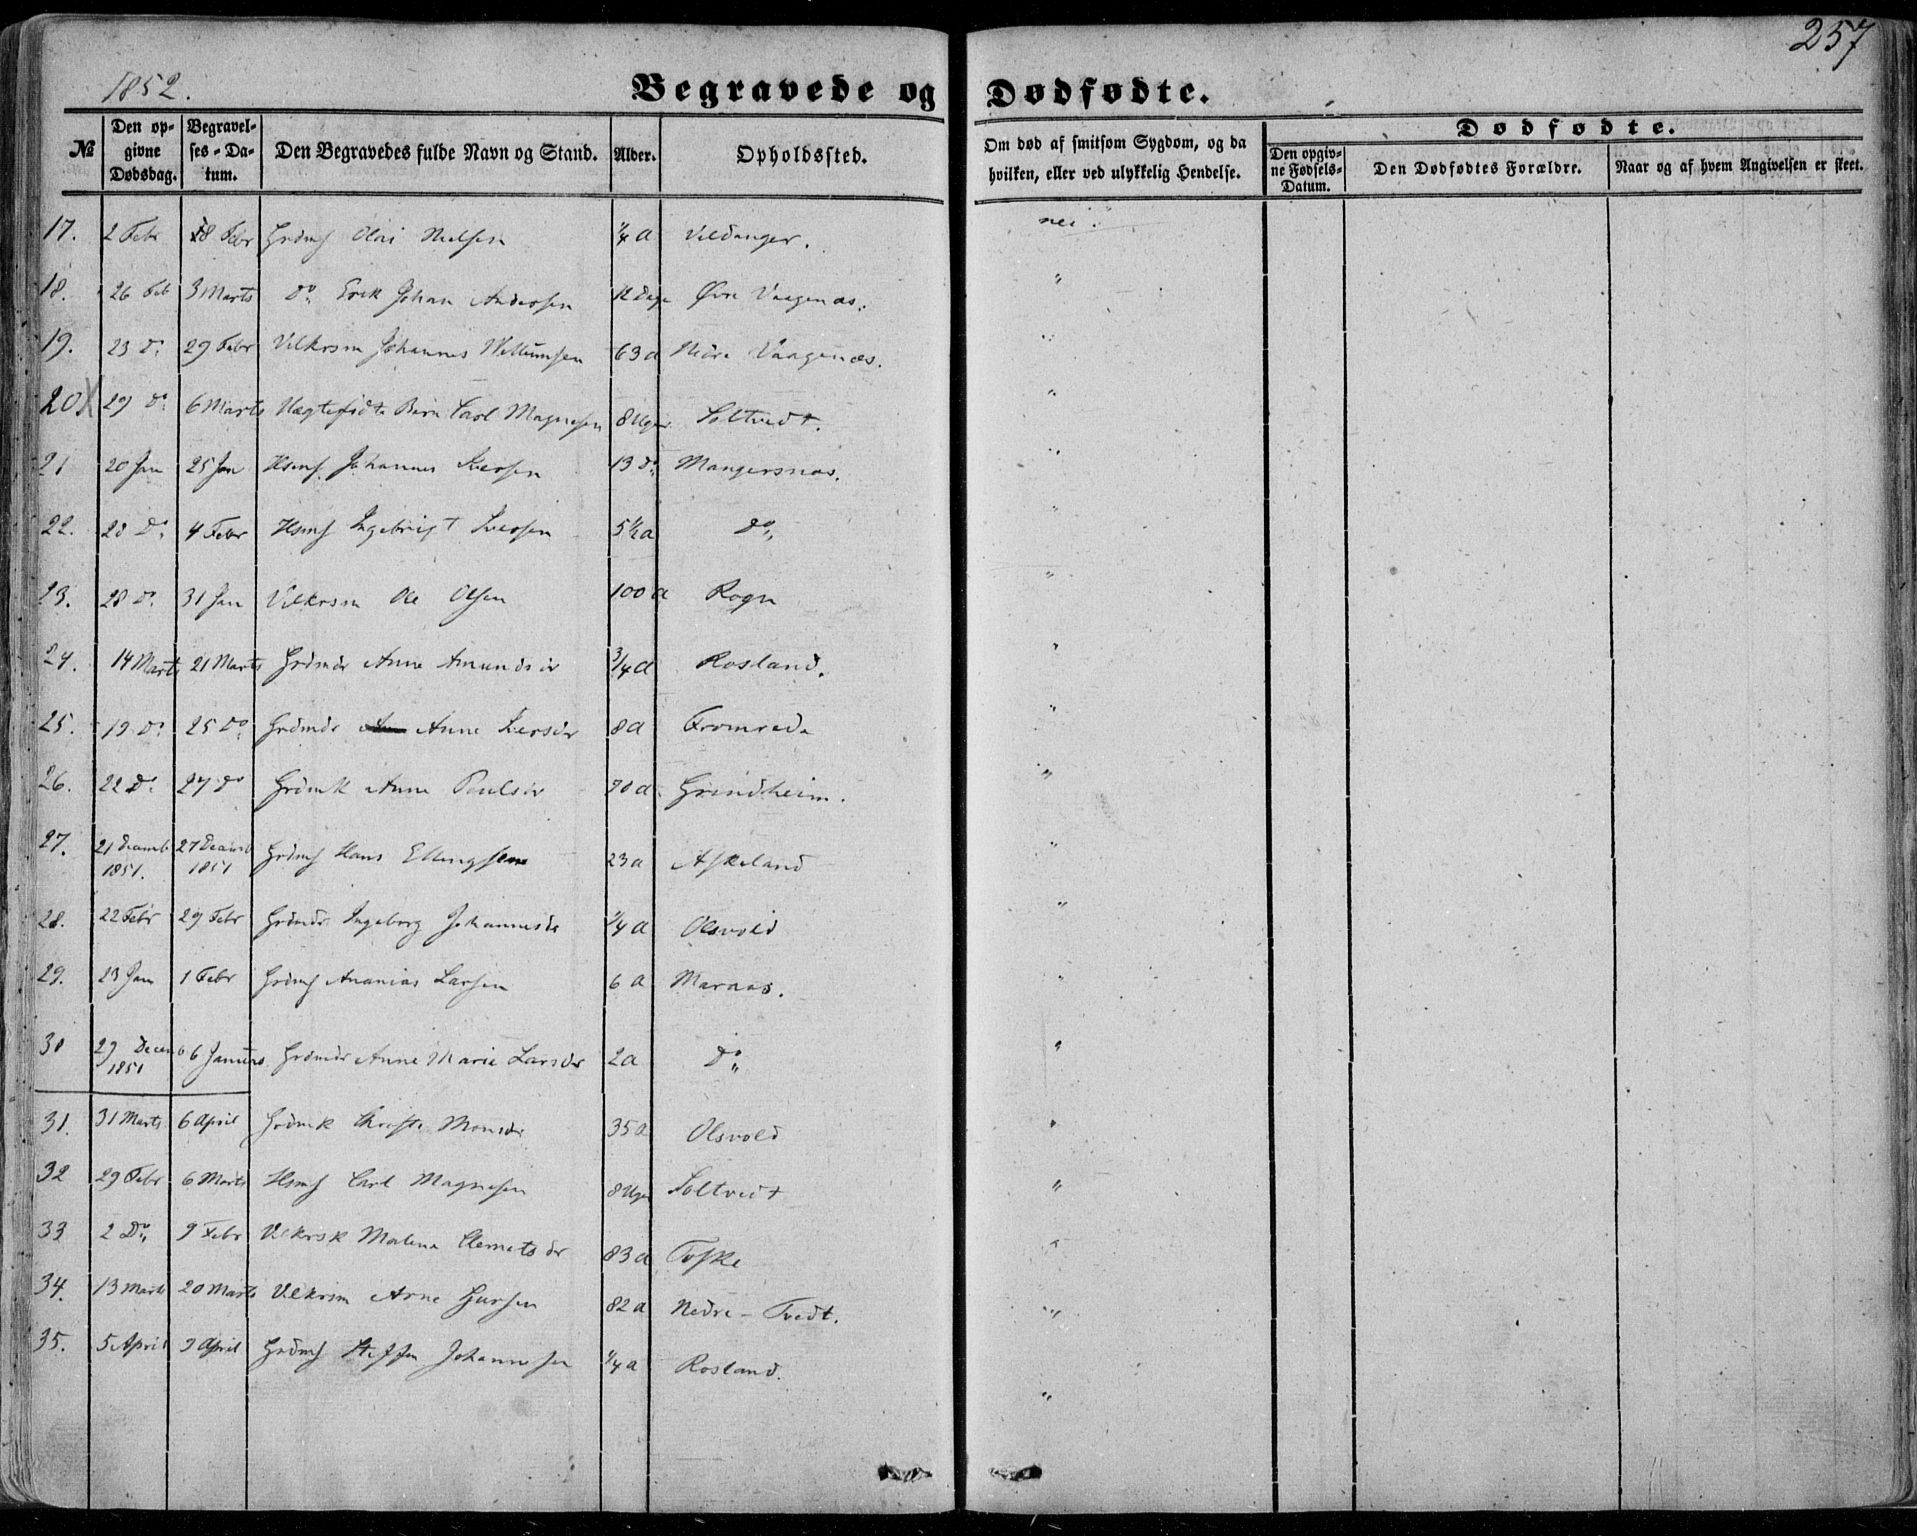 257
1852.
Begravede og Dødfødte.
№ Den op-givne Dødsdag. Begravel-ses-Da-tum. Den Begravedes fulde Navn og Stand. Alder. Opholdssted. Om død af smitsom Sygdom, og da hvilken, eller ved ulykkelig Hendelse. Dødfødte. Den opgiv-ne Fødsels-Datum. Den Dødfødtes Forældre. Naar og af hvem Angivelsen er skeet.
17. 2 Febr 8 Febr Grdmf Olai Nielsen ¼ a Vildanger. nei.
18. 26 Feb 3 Marts Do Erik Johan Andersen 12 Dage Øvre Vaagenæs. "
19. 23 Do 29 Febr Vilkrsm Johannes Willumsen 63 a Nedre Vaagenæs. "
20 X 29 Do 6 Marts Uægtefødte Barn Carl Magnesen 8 Uger Soltvedt. "
21 20 Jan 25 Jan Hsmf. Johannes Iversen 13 Do Mangersnæs. "
22. 28 Do 4 Febr Hsmf Ingebrigt Iversen 5½ a Do "
23. 28 Do 31 Jan Vilkrsm Ole Olsen 100 a Rogn "
24. 14 Marts 21 Marts Grdmdr Anne Amundsdr ¾ a Rosland. "
25. 19 Do 25 Do Grdmdr Anne Iversdr 8 a Fromrede "
26. 22 Do 27 Do Grdmk Anne Poulsdr 70 a Grindheim. "
27. 21 Decemb 1851. 27 Decemb 1851 Grdmf Hans Ellingsen 23 a Askeland "
28. 22 Febr 29 Febr Grdmdr Ingeborg Johannesdr ¼ a Olsvold "
29. 23 Jan 1 Febr Grdmf Ananias Larsen 6 a Marøas. "
30 29 Decemb 1851 6 Januar Grdmdr Anne Marie Larsdr 2 a Do "
31. 31 Marts 6 April Grdmk Christi Monsdr 35 a Olsvold "
32 29 Febr 6 Marts Hsmf Carl Magnesen 8 Uger Soltvedt "
33 2 Do 9 Febr Vilkrsk Malene Clemetsdr 83 a Toske "
34. 13 Marts 20 Marts Vilkrsm Arne Gursen 82 a Nedre-Tvedt. "
35. 5 April 9 April Grdmf Steffen Johannesen ¼ a Rosland. "